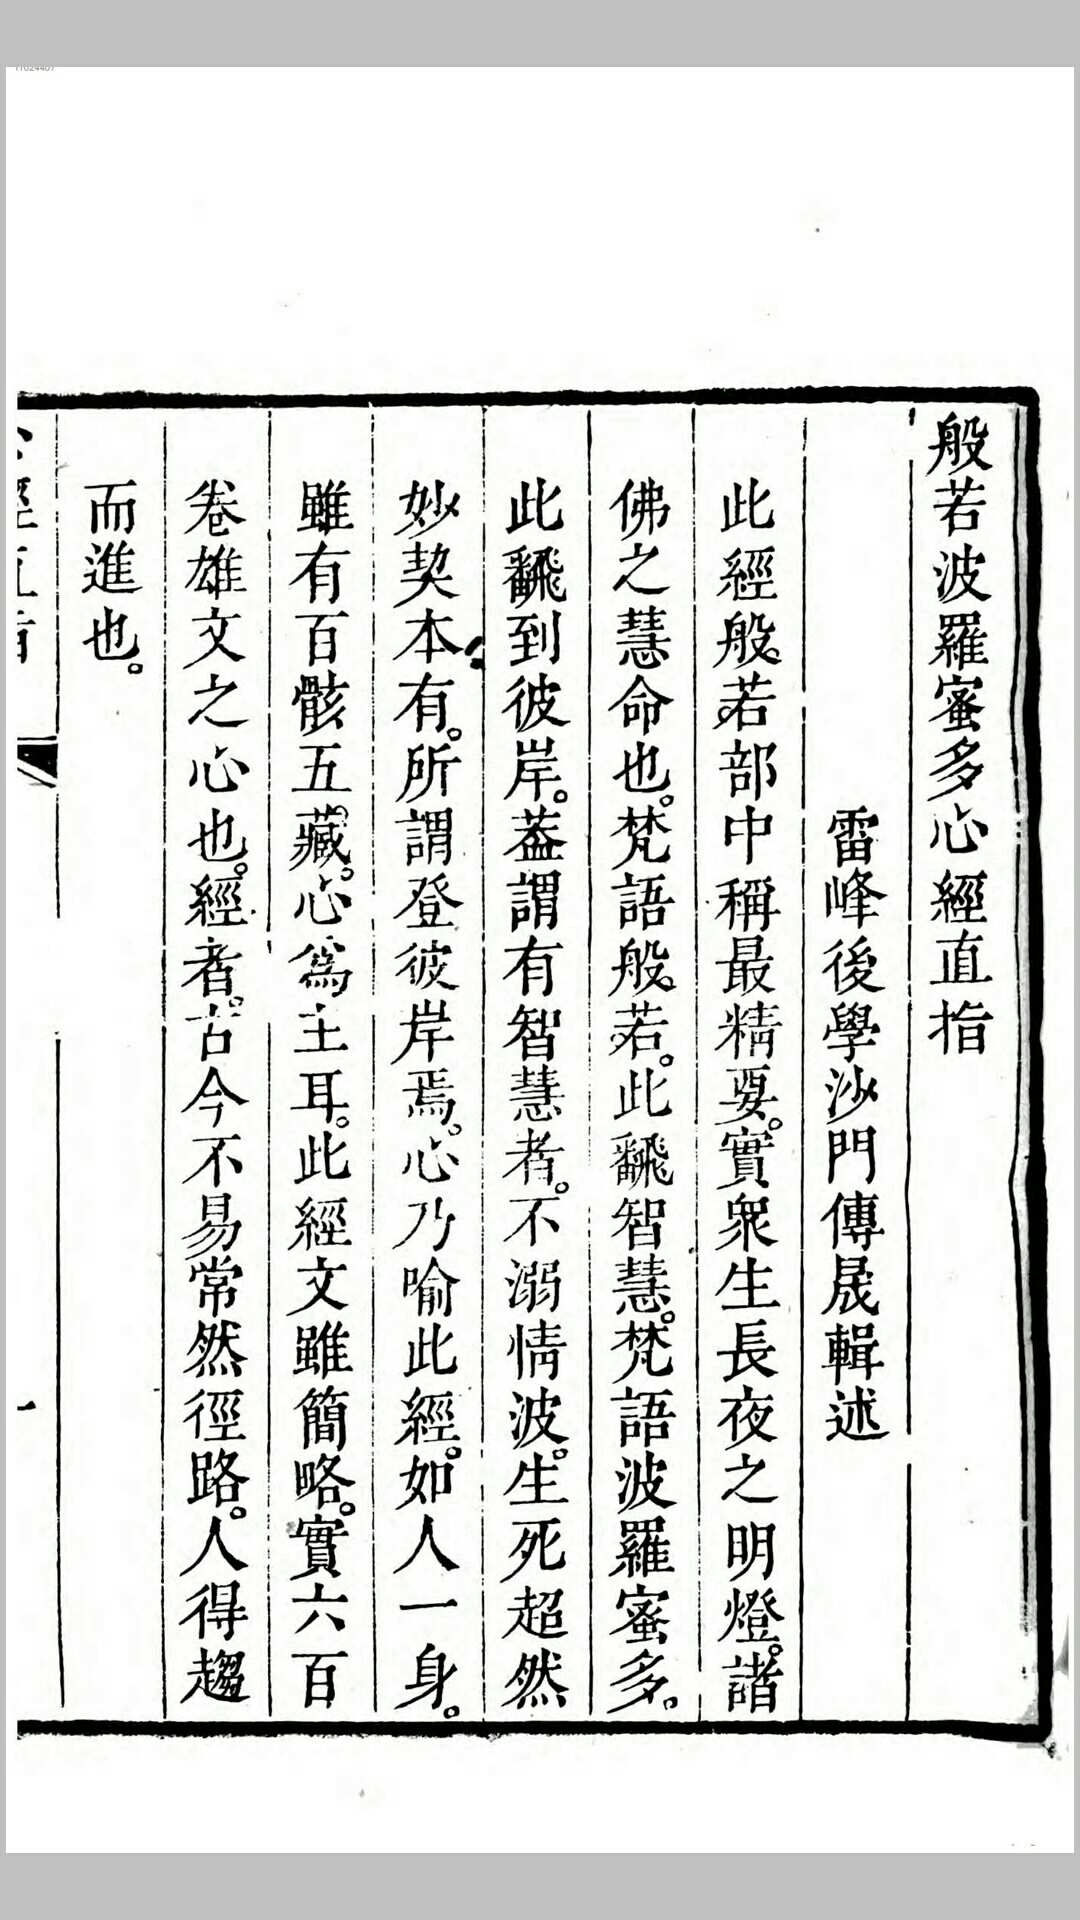 般若波羅蜜多心經直指
雷峰後學沙門傳晟輯述
此經般若部中稱最精要。實衆生長夜之明燈。諸
佛之慧命也。梵語般若。此飜智慧。梵語波羅蜜多。
此飜到彼岸。葢謂有智慧者。不溺情波。生死超然
妙契本有。所謂登彼岸焉。心乃喻此經。如人一身。
雖有百骸五藏。心爲主耳。此經文雖簡略。實六百
卷雄文之心也。經者。古今不易常然徑路。人得趨
而進也。
心經直指
一